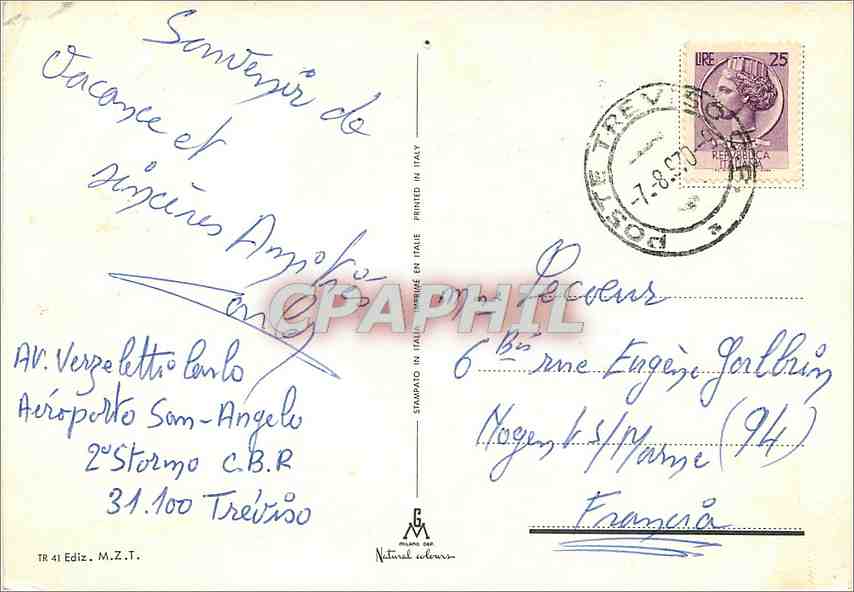 Souvenir de
Vacance et
sincères Amitiés
Av. Verzeletti Carlo
Aéroporto San-Angelo
2º Stormo C.B.R
31.100 Tréviso
TR 41 Ediz. M.Z.T.
STAMPATO IN ITALIA IMPRIMÉ EN ITALIE PRINTED IN ITALY
GM
MILANO DEP.
Natural colours
CPAPHIL
LIRE 25
REPUBBLICA
ITALIANA
POSTE TREVISO
-7.-8.970-
Lecoeur
6 Bis rue Eugène Galbrun
Nogent s/Marne (94)
Francia